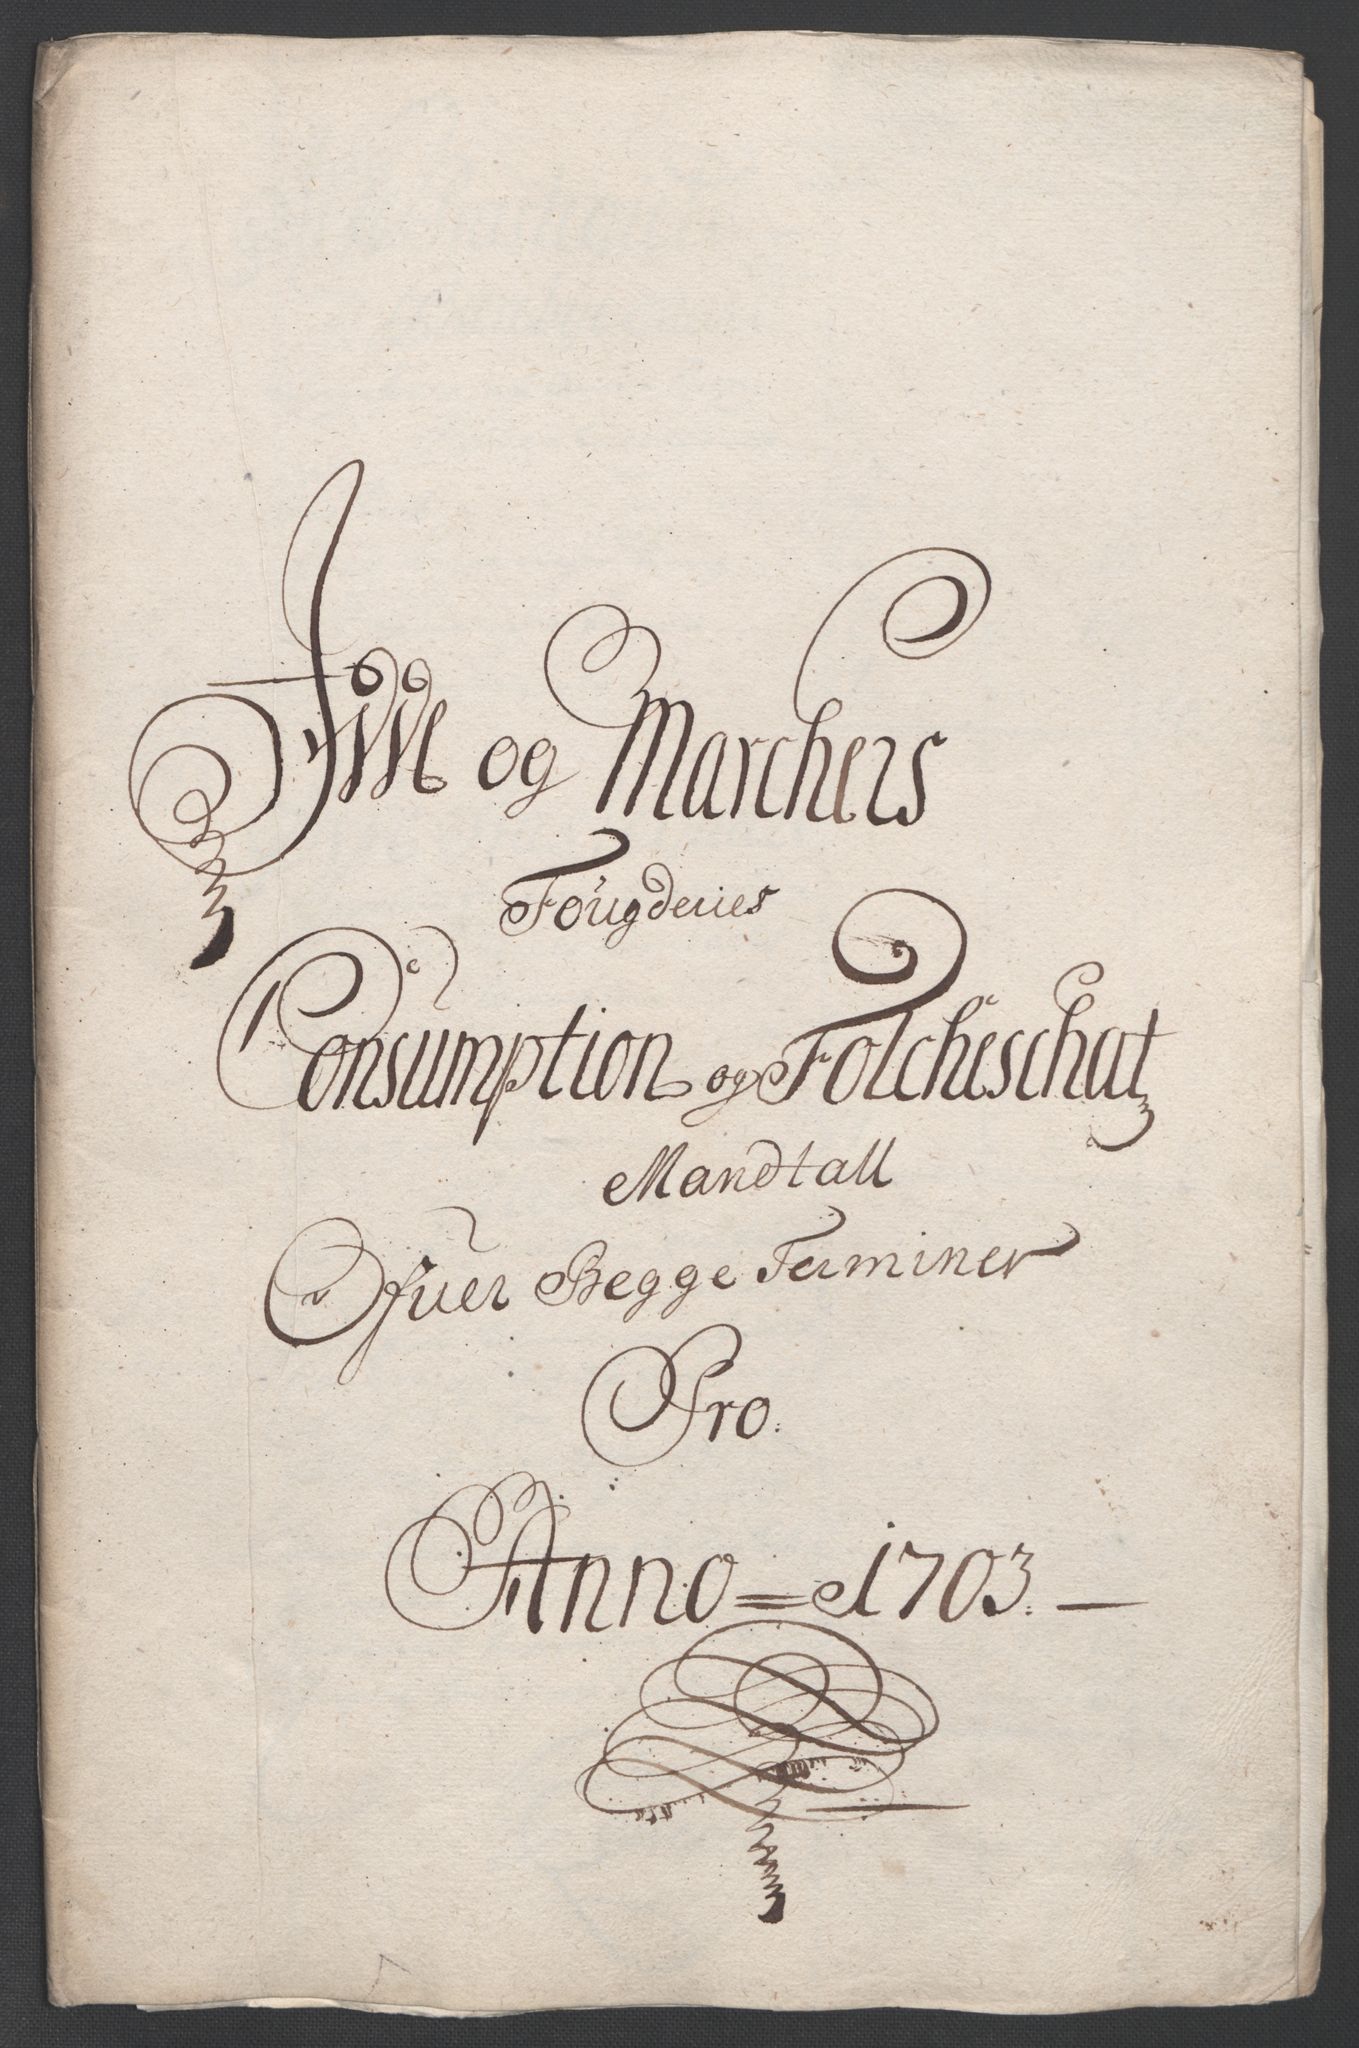 Idde og Marchers
Fougderies
Consumption og Folcheschat
Mandtall
Ofuer Begge Terminer
Pro.
Anno = 1703. —